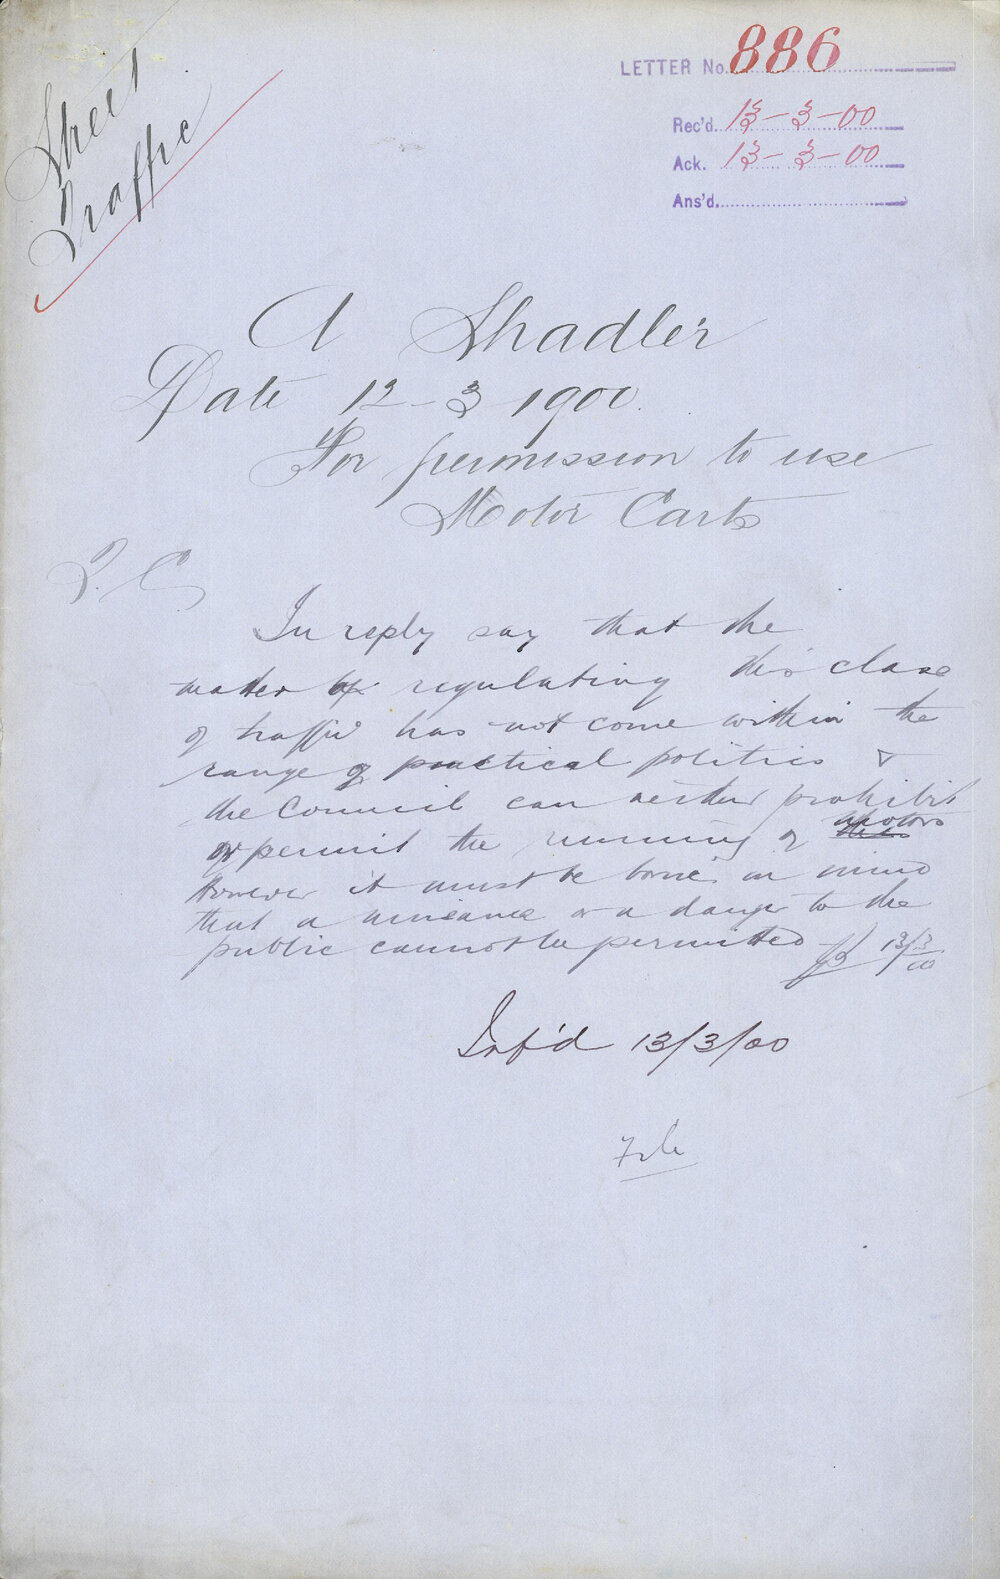 Street
Traffic
LETTER No. 886
Rec'd. 13-3-00
Ack. 13-3-00
Ans'd.
A Shadler
Date 12-3 1900.
For permission to use
Motor Carts
T. C.
In reply say that the
matter of regulating this class
of traffic has not come within the
range of practical politics &
the Council can neither prohibit
or permit the running of motors
However it must be borne in mind
that a nuisance or a danger to the
public cannot be permitted 13/3/00
Inf'd 13/3/00
File